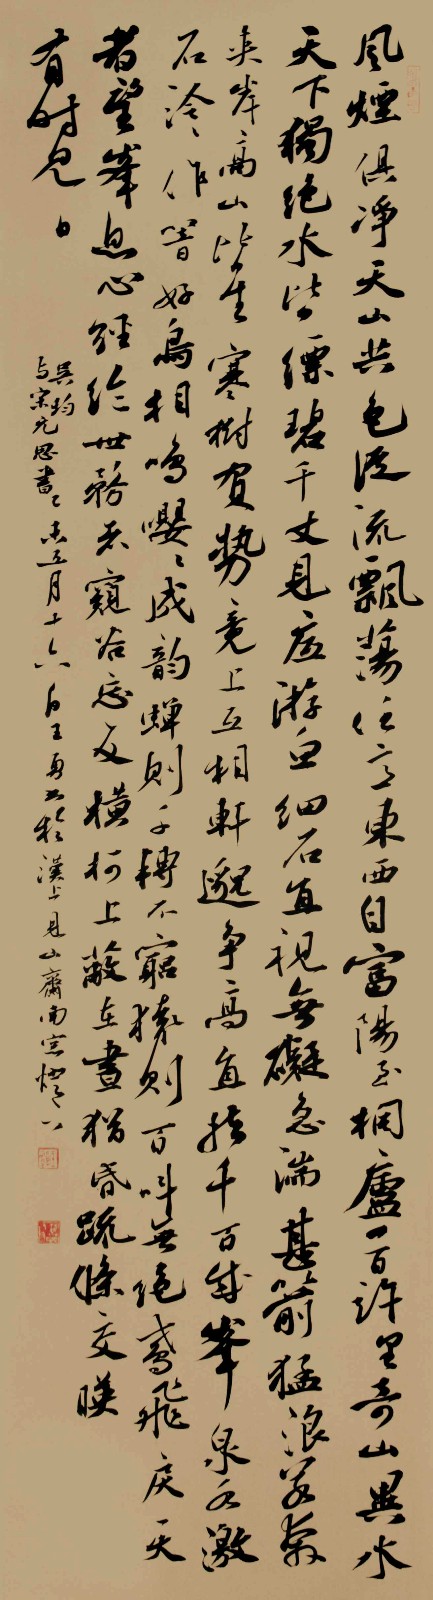 風煙俱净天山共色從流飄蕩任意東西自富陽至桐廬一百許里奇山異水
天下獨絶水皆縹碧千丈見底游魚細石直視無礙急湍甚箭猛浪若奔
夾岸高山皆生寒樹負勢競上互相軒邈争高直指千百成峰泉水激
石泠泠作響好鳥相鳴嚶嚶成韵蟬則千轉不窮猿則百叫無絶鳶飛戾天
者望峰息心經綸世務者窺谷忘反橫柯上蔽在晝猶昏疏條交映
有時見日
吴均
与宋元思書 五月十六日王勇書於漢上見山齋南窗